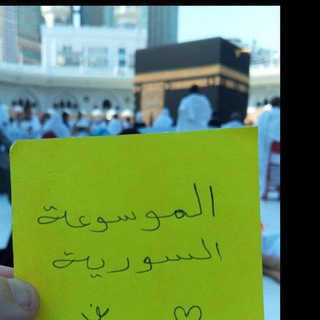 الموسوعة
السورية